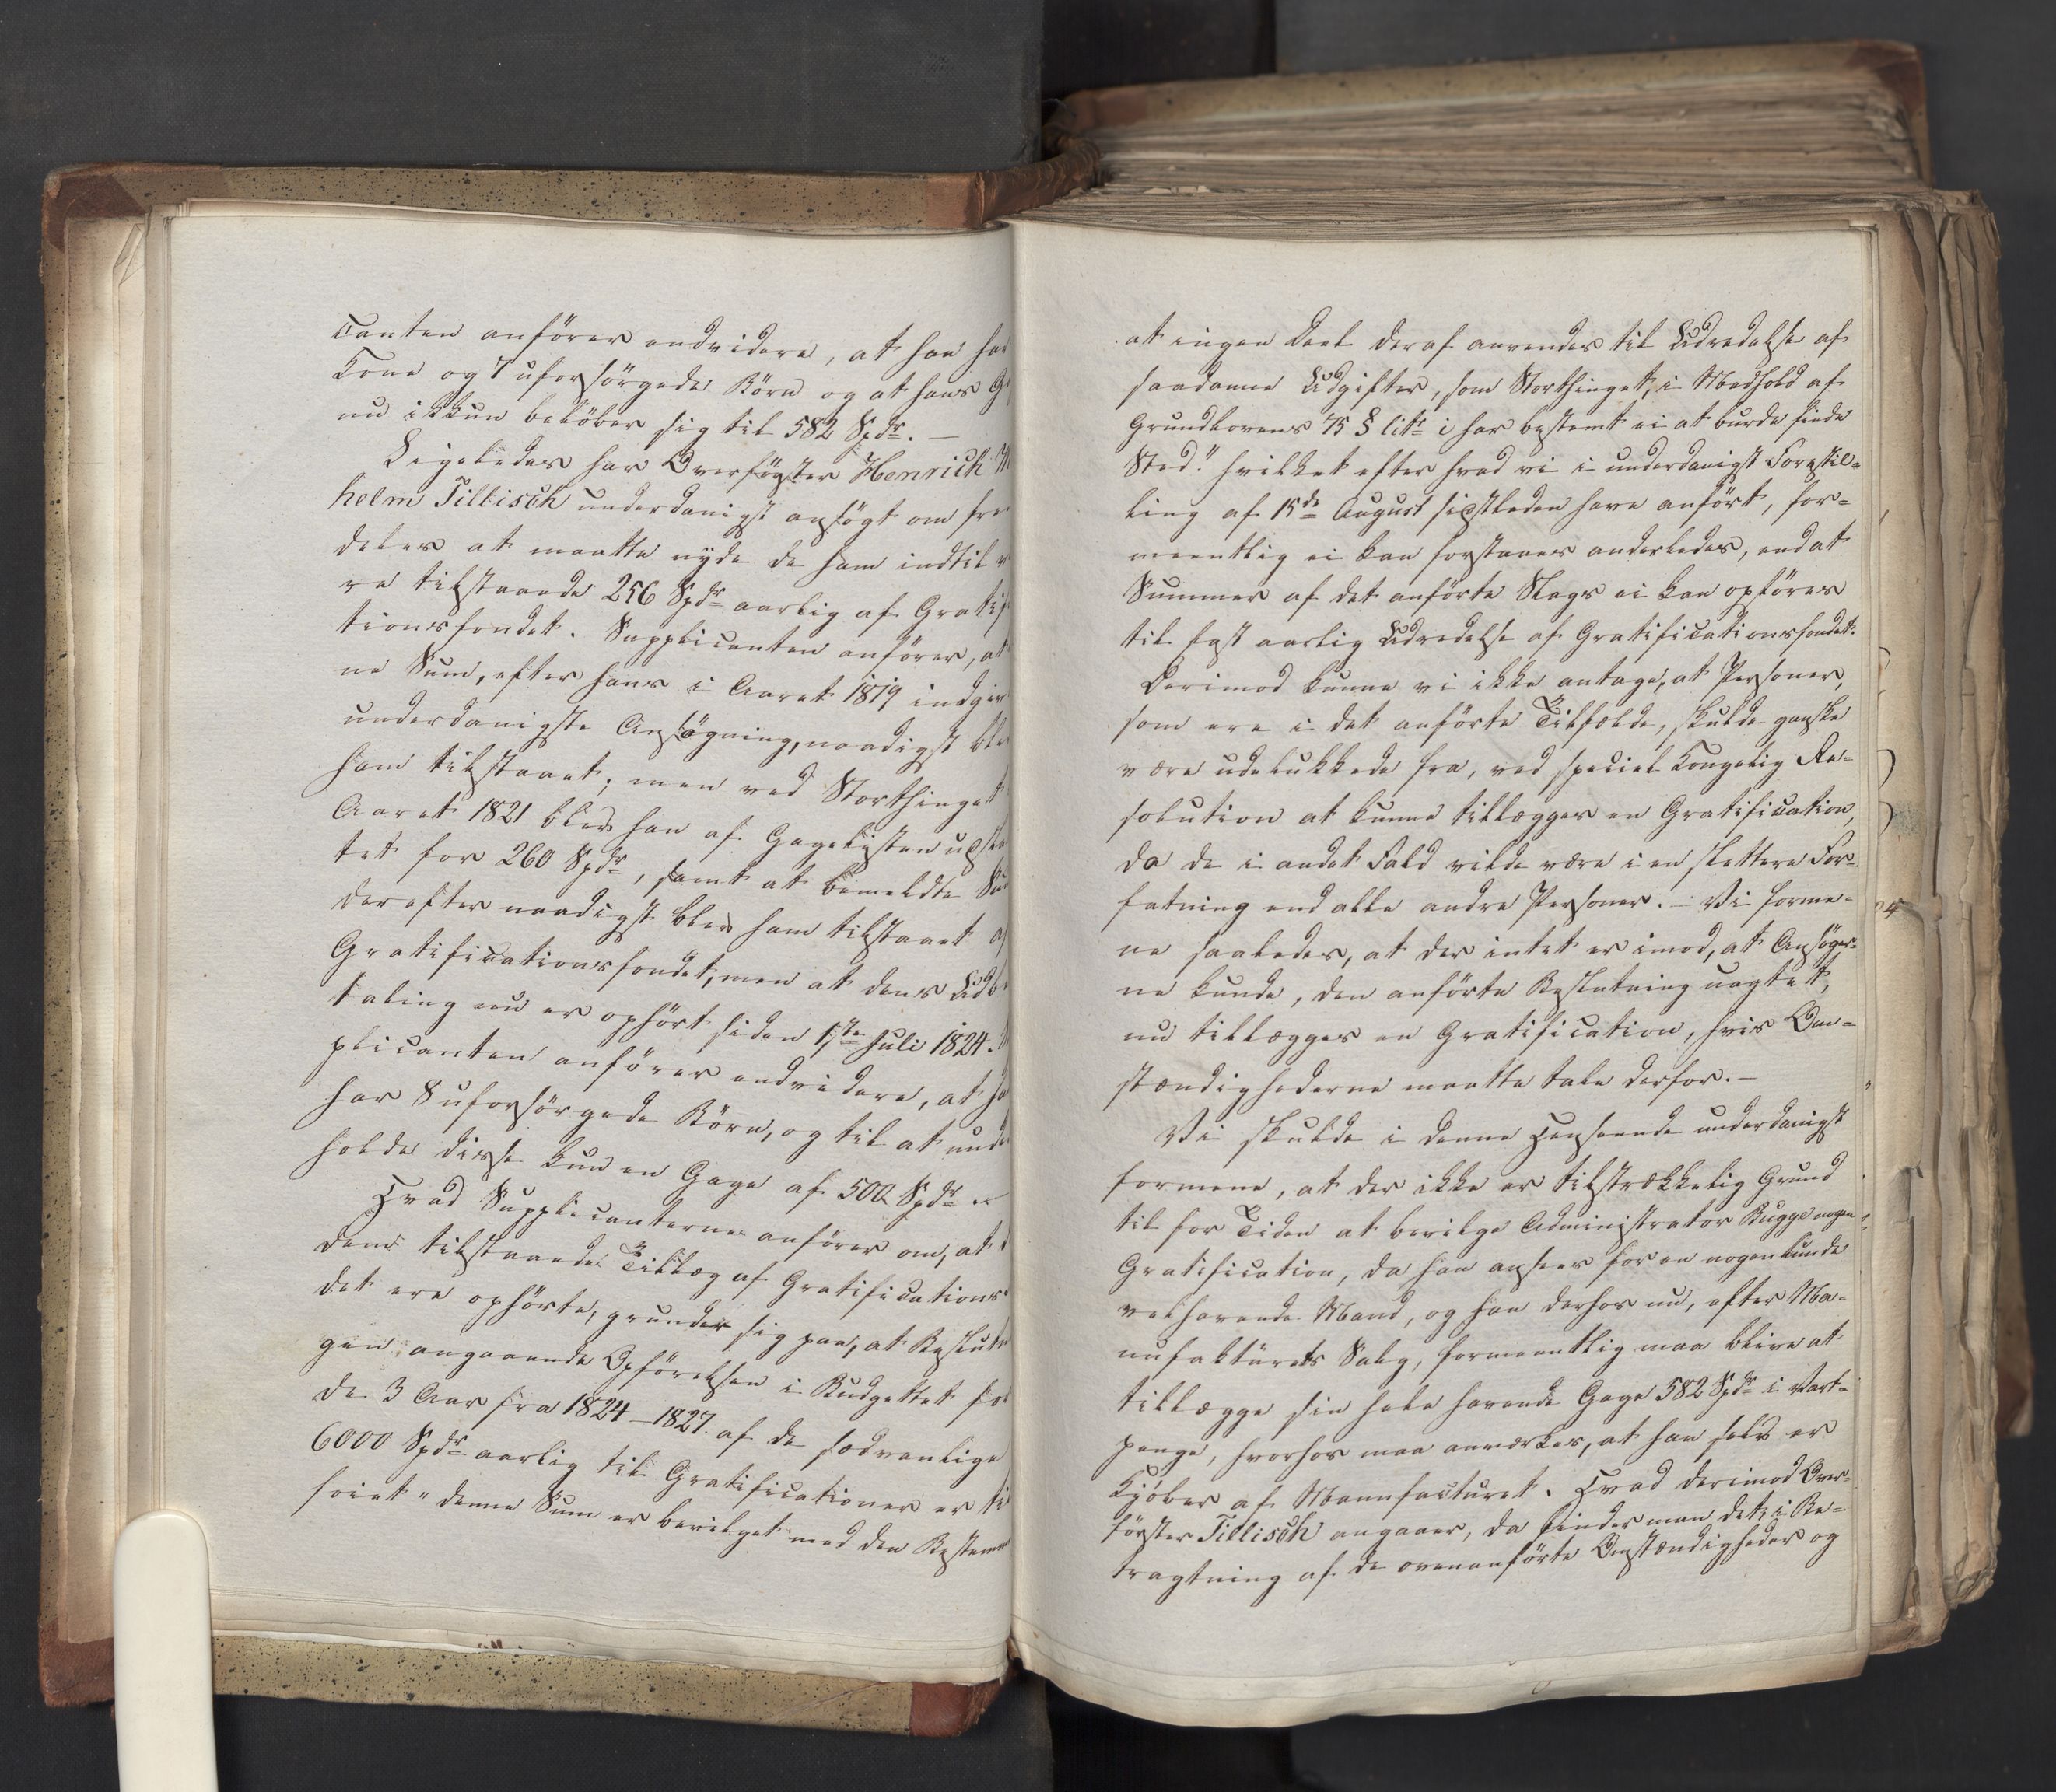 canten anförer endvidere, at han har
Kone og 7 uforsörgede Börn og at hans G
nu ikkun belöber sig til 582 Spdr. —
Ligeledes har Overförster Henrich
helm Tillisch underdanigst ansögt om frem
deles at maatte nyde de ham indtil
re tilstaaede 256 Spdr aarlig af Gratifi
tionsfondet. Supplicanten anförer, at
ne Sum, efter hans i Aaret 1819 indgiv
underdanigste Ansögning, naadigst blev
ham tilstaaet; men ved Storthinget
Aaret 1821 blev han af Gagelisten udslet
tet for 260 Spdr, samt at bemeldte Sum
derefter naadigst blev ham tilstaaet af
Gratificationsfondet, men at dens Udbe
taling nu er ophört siden 1ste Juli 1824.
plicanten anförer endvidere, at han
har 8 uforsörgede Börn, og til at under
holde disse kun en Gage af 500 Spdr. —
Hvad Supplicanterne anförer om, at
dem tilstaaede Tillæg af Gratifications
det ere ophörte, grunder sig paa, at Beslut
gen angaaende Opförelsen i Budgettet for
de 3 Aar fra 1824–1827. af de sædvanlige
6000 Spdr aarlig til Gratificationer er til
föiet "denne Sum er bevilget med den Bestem
at ingen Deel deraf anvendes til Udredelse af
saadanne Udgifter, som Storthinget, i Medhold af
Grundlovens 75 § litr i har bestemt ei at burde finde
Sted." hvilket efter hvad vi i underdanigst Forestil=
ling af 15de August sidstleden have anfört, for=
meentlig ei kan forstaaes anderledes, end at
Summer af det anförte Slags ei kan opföres
til fast aarlig Udredelse af Gratificationsfondet.
Derimod kunne vi ikke antage, at Personer,
som ere i det anförte Tilfælde, skulde ganske
være udelukkede fra, ved speciel Kongelig Re=
solution at kunne tillægges en Gratification,
da de i andet Fald vilde være i en slettere For=
fatning end alle andre Personer. — Vi forme=
ne saaledes, at der intet er imod, at Ansöger=
ne kunde, den anförte Beslutning uagtet,
nu tillægges en Gratification, hvis Om=
stændighederne maatte tale derfor. —
Vi skulde i denne Henseende underdanigst
formene, at der ikke er tilstrækkelig Grund
til for Tiden at bevilge Administrator Bugge nogen
Gratification, da han ansees for en nogenlunde
velhavende Mand, og han derhos nu, efter Ma=
nufakturets Salg, formeentlig maa blive at
tillægge sin hele havende Gage 582 Spdr i Vart=
penge, hvorhos maa anmærkes, at han selv er
Kjöber af Manufacturet. Hvad derimod Over=
förster Tillisch angaaer, da finder man det, i Be=
tragtning af de ovenanförte Omstændigheder og